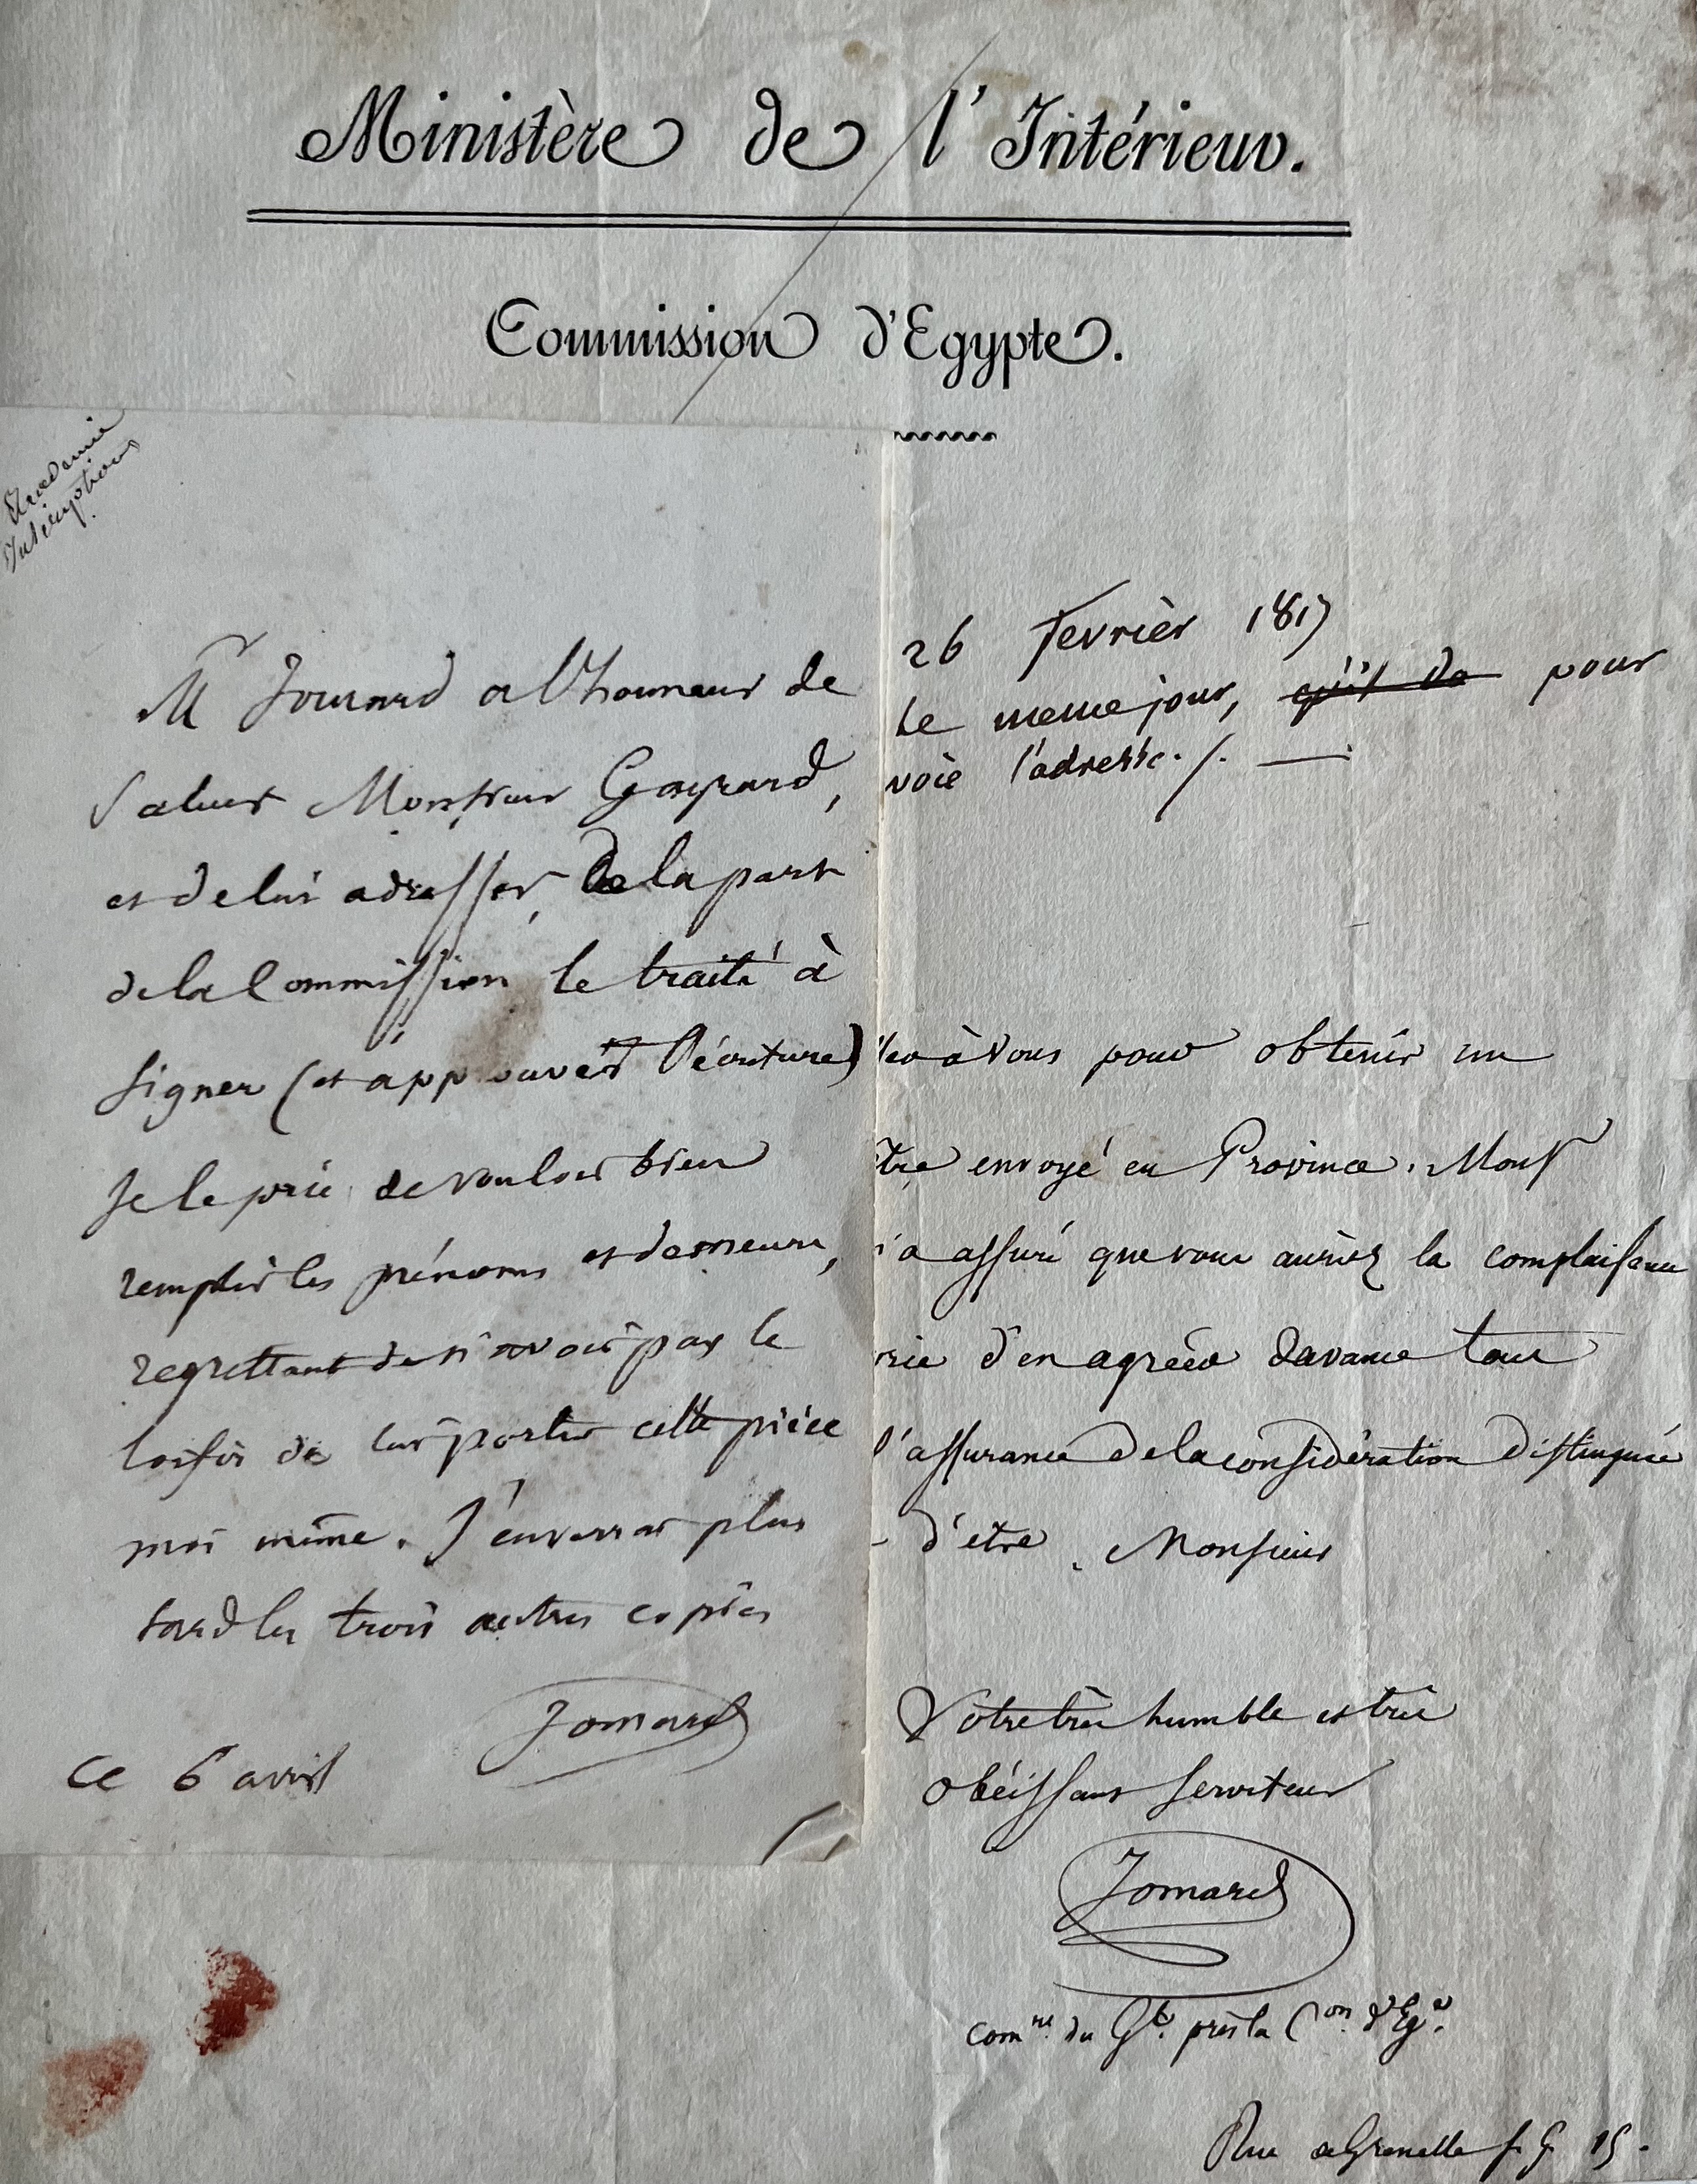 Ministère de l'Intérieur.
Commission d'Egypte.
Académie
Inscriptions.
Mr Jomard a l'honneur de
saluer Monsieur Gayrard,
et de lui adresser, de la part
de la Commission le traité à
signer (et approuver l'écriture)
Je le prie de vouloir bien
remplir les prénoms et demeure,
regrettant de n'avoir pas le
loisir de lui porter cette pièce
moi même. J'enverrai plus
tard les trois autres copies
Jomard
ce 6 avril
26 fevrièr 1817
Le meme jour, qu'il de pour
voie l'adresse ./. —
à vous pour obtenir un
tre envoyé en Province. Monsr
'a assuré que vous auriez la complaisance
rie d'en agréer davance tous
l'assurance de la considération distinguée
d'etre, Monsieur
Votre très humble et très
obéissant serviteur
Jomard
comre. du Gt. près la Con. d'Eg.
Rue de Grenelle s. G. 15.